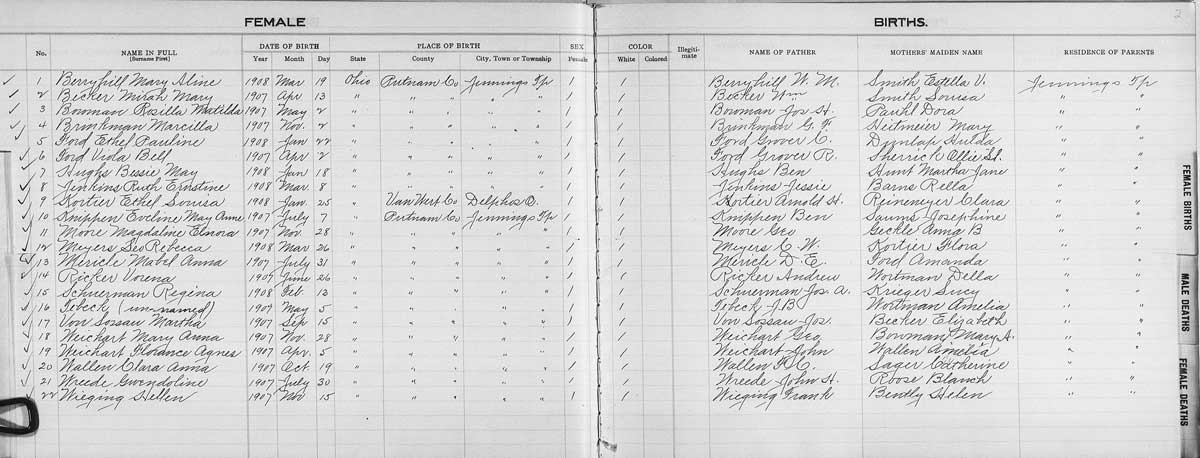 2
FEMALE BIRTHS.
No. NAME IN FULL [Surname First] DATE OF BIRTH Year Month Day PLACE OF BIRTH State County City, Town or Township SEX Female COLOR White Colored Illegitimate NAME OF FATHER MOTHERS' MAIDEN NAME RESIDENCE OF PARENTS
1 Berryhill Mary Aline 1908 Mar 19 Ohio Putnam Co Jennings Tp / / Berryhill W. M. Smith Estella V. Jennings Tp
2 Becker Mirah Mary 1907 Apr 13 " " " / / Becker Wm Smith Louisa " "
3 Bowman Rosilla Matilda 1907 May 2 " " " " / / Bowman Jos H. Pauhl Dora " "
4 Brinkman Marcilla 1907 Nov. 2 " " " " / / Brinkman G. F. Heitmeier Mary " "
5 Ford Ethel Pauline 1908 Jan 22 " " " " / / Ford Grover C. Dunlap Hulda " "
6 Ford Viola Bell 1907 Apr 2 " " " " / / Ford Grover R. Sherrick Ollie " "
7 Hughs Bessie May 1908 Jan 18 " " " " / / Hughs Ben Hunt Martha Jane " "
8 Jinkins Ruth Ernstine 1908 Mar 8 " " " " / / Jinkins Jessie Barns Rella " "
9 Kortier Ethel Louisa 1908 Jan. 25 " Van Wert Co Delphos O. / / Kortier Arnold H. Reinemeyer Clara " "
10 Knippen Eveline May Anne 1907 July 7 " Putnam Co Jennings Tp / / Knippen Ben Saums Josephine " "
11 Moore Magdaline Elnora 1907 Nov. 28 " " " " / / Moore Geo Geckle Anna B " "
12 Meyers Leo Rebecca 1908 Mar 26 " " " " / / Meyers C. W. Kortier Flora " "
13 Miricle Mabel Anna 1907 July 31 " " " " / / Miricle D. E. Ford Amanda " "
14 Ricker Vorena 1907 June 26 " " " " / / Ricker Andrew Wortman Della " "
15 Schuerman Regina 1908 Feb. 13 " " " " / / Schuerman Jos. A. Krieger Lucy " "
16 Tebeck (un-named) 1907 May 5 " " " " / / Tebeck J.B. Wortman Amelia " "
17 Von Sossau Martha 1907 Sep 15 " " " " / / Von Sossau Jos. Becker Elizabeth " "
18 Weichart Mary Anna 1907 Nov. 28 " " " " / / Weichart Geo Bowman Mary A. " "
19 Weichart Florance Agnes 1907 Apr. 5 " " " " / / Weichart John Wallen Amelia " "
20 Wallen Clara Anna 1907 Oct. 19 " " " " / / Wallen F. C. Sager Catherine " "
21 Wrede Gwendoline 1907 July 30 " " " " / / Wreede John H. Roose Blanch " "
22 Wieging Hellen 1907 Nov 15 " " " " / / Wieging Frank Bently Helen " "
FEMALE BIRTHS
MALE DEATHS
FEMALE DEATHS